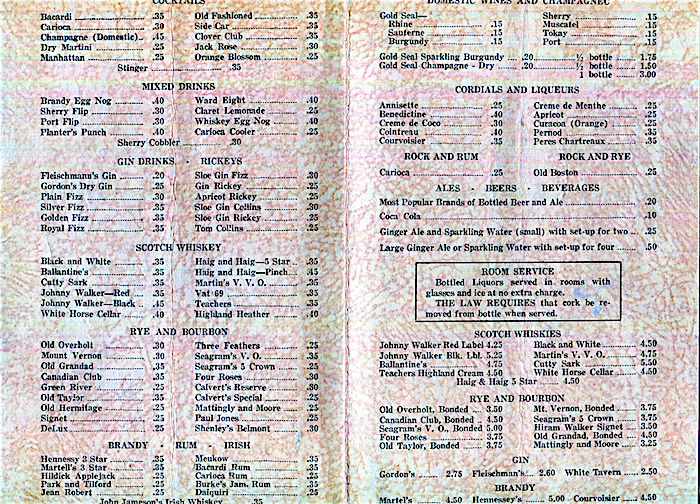 COCKTAILS
Bacardi .35 Old Fashioned .35
Carioca .30 Side Car .35
Champagne (Domestic) .45 Clover Club .35
Dry Martini .25 Jack Rose .30
Manhattan .25 Orange Blossom .25
Stinger .35
MIXED DRINKS
Brandy Egg Nog .40 Ward Eight .40
Sherry Flip .30 Claret Lemonade .25
Port Flip .30 Whiskey Egg Nog .40
Planter's Punch .40 Carioca Cooler .25
Sherry Cobbler .30
GIN DRINKS - RICKEYS
Fleischmann's Gin .20 Sloe Gin Fizz .30
Gordon's Dry Gin .25 Gin Rickey .25
Plain Fizz .30 Apricot Rickey .25
Silver Fizz .35 Sloe Gin Collins .30
Golden Fizz .35 Sloe Gin Rickey .25
Royal Fizz .35 Tom Collins .25
SCOTCH WHISKEY
Black and White .35 Haig and Haig—5 Star .35
Ballantine's .35 Haig and Haig—Pinch .45
Cutty Sark .35 Martin's V. V. O. .35
Johnny Walker—Red .35 Vat 69 .35
Johnny Walker—Black .45 Teachers .35
White Horse Cellar .40 Highland Heather .40
RYE AND BOURBON
Old Overholt .30 Three Feathers .25
Mount Vernon .30 Seagram's V. O. .35
Old Grandad .35 Seagram's 5 Crown .25
Canadian Club .35 Four Roses .30
Green River .25 Calvert's Reserve .30
Old Taylor .35 Calvert's Special .25
Old Hermitage .25 Mattingly and Moore .25
Signet .25 Paul Jones .25
DeLux .25 Shenley's Belmont .30
BRANDY - RUM - IRISH
Hennessy 3 Star .35 Meukow .35
Martell's 3 Star .35 Bacardi Rum .35
Hildick Applejack .25 Carioca Rum .25
Park and Tilford .30 Burke's Jam. Rum .35
Jean Robert .25 Daiquiri .25
John Jameson's Irish Whiskey .35
DOMESTIC WINES AND CHAMPAGNE
Gold Seal— Sherry .15
Rhine .15 Muscatel .15
Sauterne .15 Tokay .15
Burgundy .15 Port .15
Gold Seal Sparkling Burgundy .20 ½ bottle 1.75
Gold Seal Champagne - Dry .20 ½ bottle 1.50
1 bottle 3.00
CORDIALS AND LIQUEURS
Annisette .25 Creme de Menthe .25
Benedictine .40 Apricot .25
Creme de Coco .30 Curacoa (Orange) .50
Cointreau .40 Pernod .35
Courvoisier .35 Peres Chartreux .35
ROCK AND RUM ROCK AND RYE
Carioca .25 Old Boston .25
ALES - BEERS - BEVERAGES
Most Popular Brands of Bottled Beer and Ale .20
Coca Cola .10
Ginger Ale and Sparkling Water (small) with set-up for two .25
Large Ginger Ale or Sparkling Water with set-up for four .50
ROOM SERVICE
Bottled Liquors served in rooms with
glasses and ice at no extra charge.
THE LAW REQUIRES that cork be re-
moved from bottle when served.
SCOTCH WHISKIES
Johnny Walker Red Label 4.25 Black and White 4.50
Johnny Walker Blk. Lbl. 5.25 Martin's V. V. O. 4.75
Ballantine's 4.75 Cutty Sark 5.50
Teachers Highland Cream 4.50 White Horse Cellar 4.50
Haig & Haig 5 Star 4.50
RYE AND BOURBON
Old Overholt, Bonded 3.50 Mt. Vernon, Bonded 3.75
Canadian Club, Bonded 4.50 Seagram's 5 Crown 3.75
Seagram's V. O., Bonded 5.00 Hiram Walker Signet 3.50
Four Roses 3.75 Old Grandad, Bonded 4.50
Old Taylor, Bonded 3.75 Mattingly and Moore 3.25
GIN
Gordon's 2.75 Fleischman's 2.60 White Tavern 2.50
BRANDY
Martel's 4.50 Hennessy's 5.00 Courvoisier 4.50